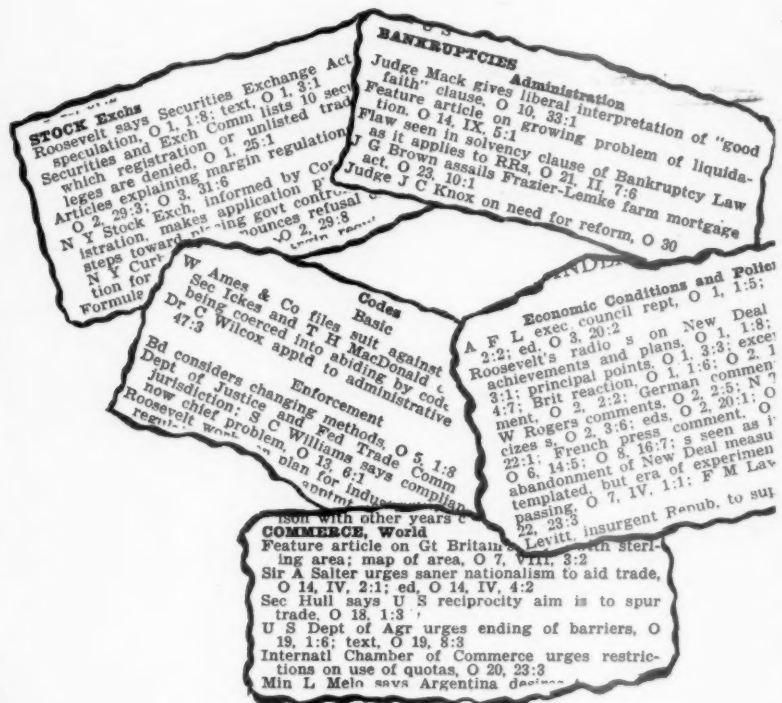 STOCK Exchs
Roosevelt says Securities Exchange Act
speculation, O 1, 1:8; text, O 1, 3:1
Securities and Exch Comm lists 10
which registration or unlisted
leges are denied, O 1, 25:1
Articles explaining margin regulations
O 2, 29:3; O 3, 31:6
N Y Stock Exch, informed by
istration, makes application
steps toward govt
N Y refusal
tion for O 2, 29:8
Formula
BANKRUPTCIES
Administration
Judge Mack gives liberal interpretation of "good
faith" clause, O 10, 33:1
Feature article on growing problem of liquida-
tion, O 14, IX, 5:1
Flaw seen in solvency clause of Bankruptcy Law
as it applies to RRs, O 21, II, 7:6
J G Brown assails Frazier-Lemke farm mortgage
act, O 23, 10:1
Judge J C Knox on need for reform, O 30
Codes
Basic
W Ames & Co files suit against
Sec Ickes and T H MacDonald
being coerced into abiding by code
Dr C Wilcox apptd to administrative
47:3
Enforcement
Bd considers changing methods, O 5, 1:8
Dept of Justice and Fed Trade Comm
jurisdiction; S C Williams says
now chief problem, O 13, 6:1
Roosevelt plan for
Economic Conditions and
A F L exec council rept, O 1, 1:5;
2:2; ed, O 3, 20:2
Roosevelt's radio s on New Deal
achievements and plans, O 1, 1:8;
3:1; principal points, O 1, 3:3;
4:7; Brit reaction, O 1, 1:6; O 2,
ment, O 2, 2:2; German
W Rogers comments, O 2, 2:5; N
cizes s, O 2, 3:6; eds, O 2, 20:1; O
22:1; French press comment, O
O 6, 14:5; O 8, 16:7; s seen as
abandonment of New Deal
templated, but era of
passing, O 7, IV, 1:1; F M
22, 23:3
Levitt, insurgent Repub, to
with other years
COMMERCE, World
Feature article on Gt with sterl-
ing area; map of area, O 7, VIII, 3:2
Sir A Salter urges saner nationalism to aid trade,
O 14, IV, 2:1; ed, O 14, IV, 4:2
Sec Hull says U S reciprocity aim is to spur
trade, O 18, 1:3
U S Dept of Agr urges ending of barriers, O
19, 1:6; text, O 19, 8:3
Internatl Chamber of Commerce urges restric-
tions on use of quotas, O 20, 23:3
Min L Melo says Argentina